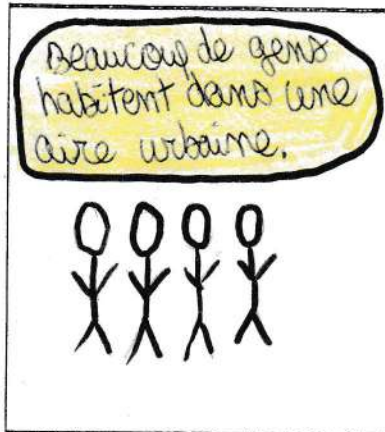 Beaucoup de gens
habitent dans une
aire urbaine.